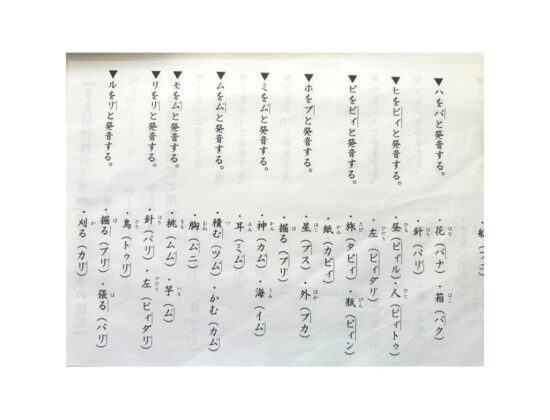 ▼ハをパと発音する。 ・花(パナ) ・箱(パク)
・針(パリ)
▼ヒをピィと発音する。 ・昼(ピィル)・人(ピィトゥ)
・左(ピィダリ)
▼ビをビィと発音する。 ・旅(タビィ)・瓶(ビィン)
・紙(カビィ)
▼ホをプと発音する。 ・星(プス)・外(プカ)
・掘る(プリ)
▼ミをムと発音する。 ・神(カム)・海(イム)
・耳(ミム)
▼ムをムと発音する。 ・積む(ツム)・かむ(カム)
・胸(ムニ)
▼モをムと発音する。 ・桃(ムム)・芋(ム)
▼リをリと発音する。 ・針(パリ)・左(ピィダリ)
・鳥(トゥリ)
▼ルをリと発音する。 ・掘る(プリ)・張る(パリ)
・刈る(カリ)